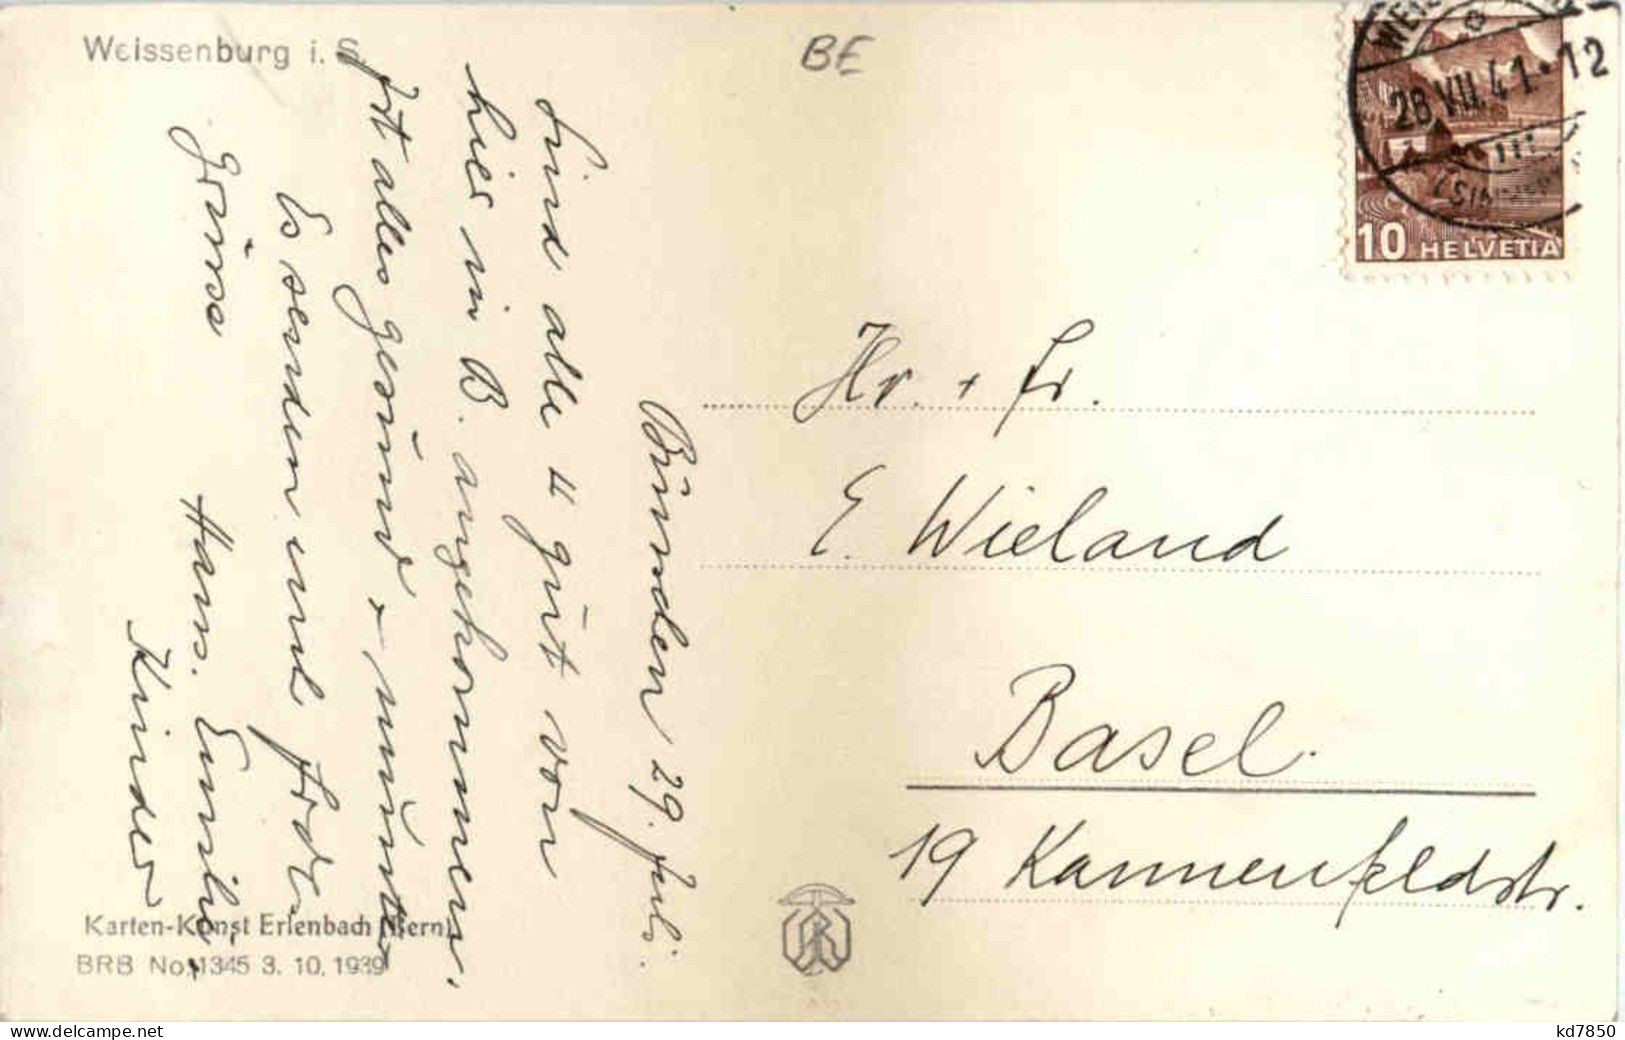 Weissenburg i. S.
BE
28.VII.41.-12
10 HELVETIA
29. Juli.
Sind alle 4 gut von
hier in B. angekommen.
Ist alles gesund + munter
Es senden viel
Grüsse
Hans. Emili
Kinder
Hr. + Fr.
E. Wieland
Basel.
19 Kannenfeldstr.
Karten-Kunst Erlenbach (Bern)
BRB No. 1345 3. 10. 1939
kd7850